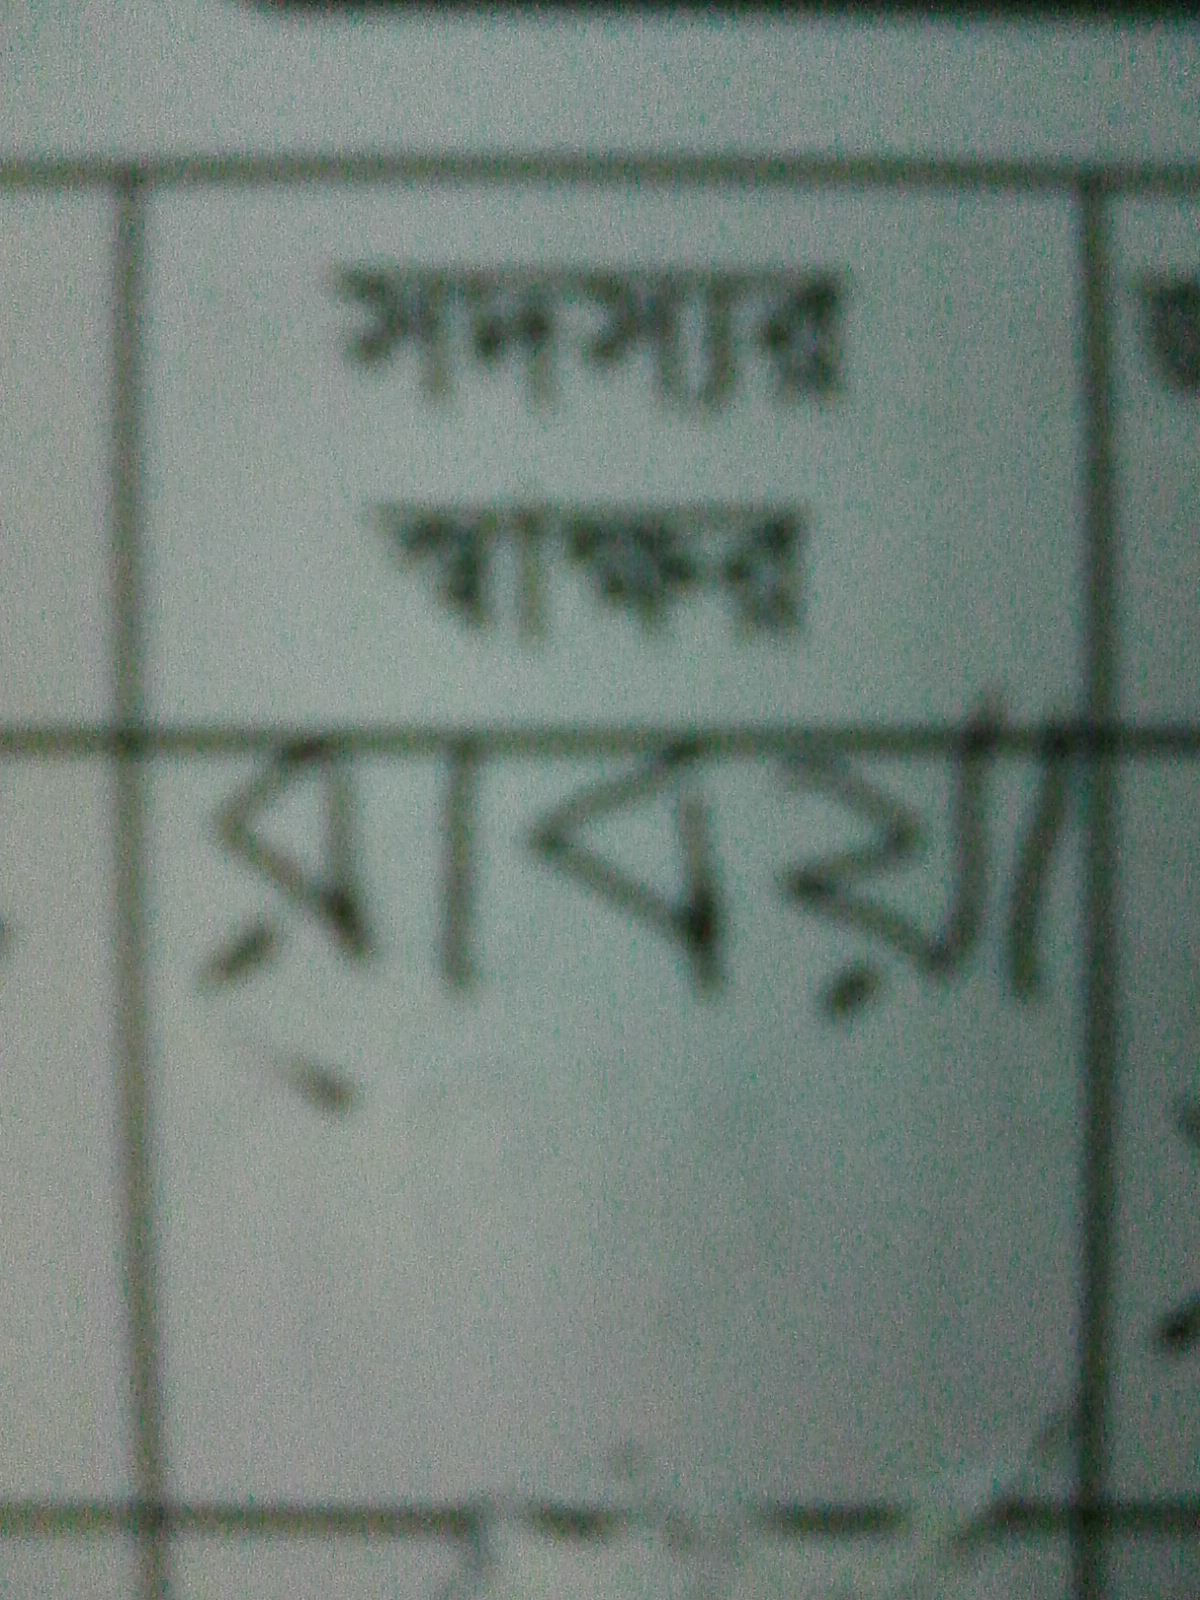 সদস্যার
স্বাক্ষর
রাবয়া